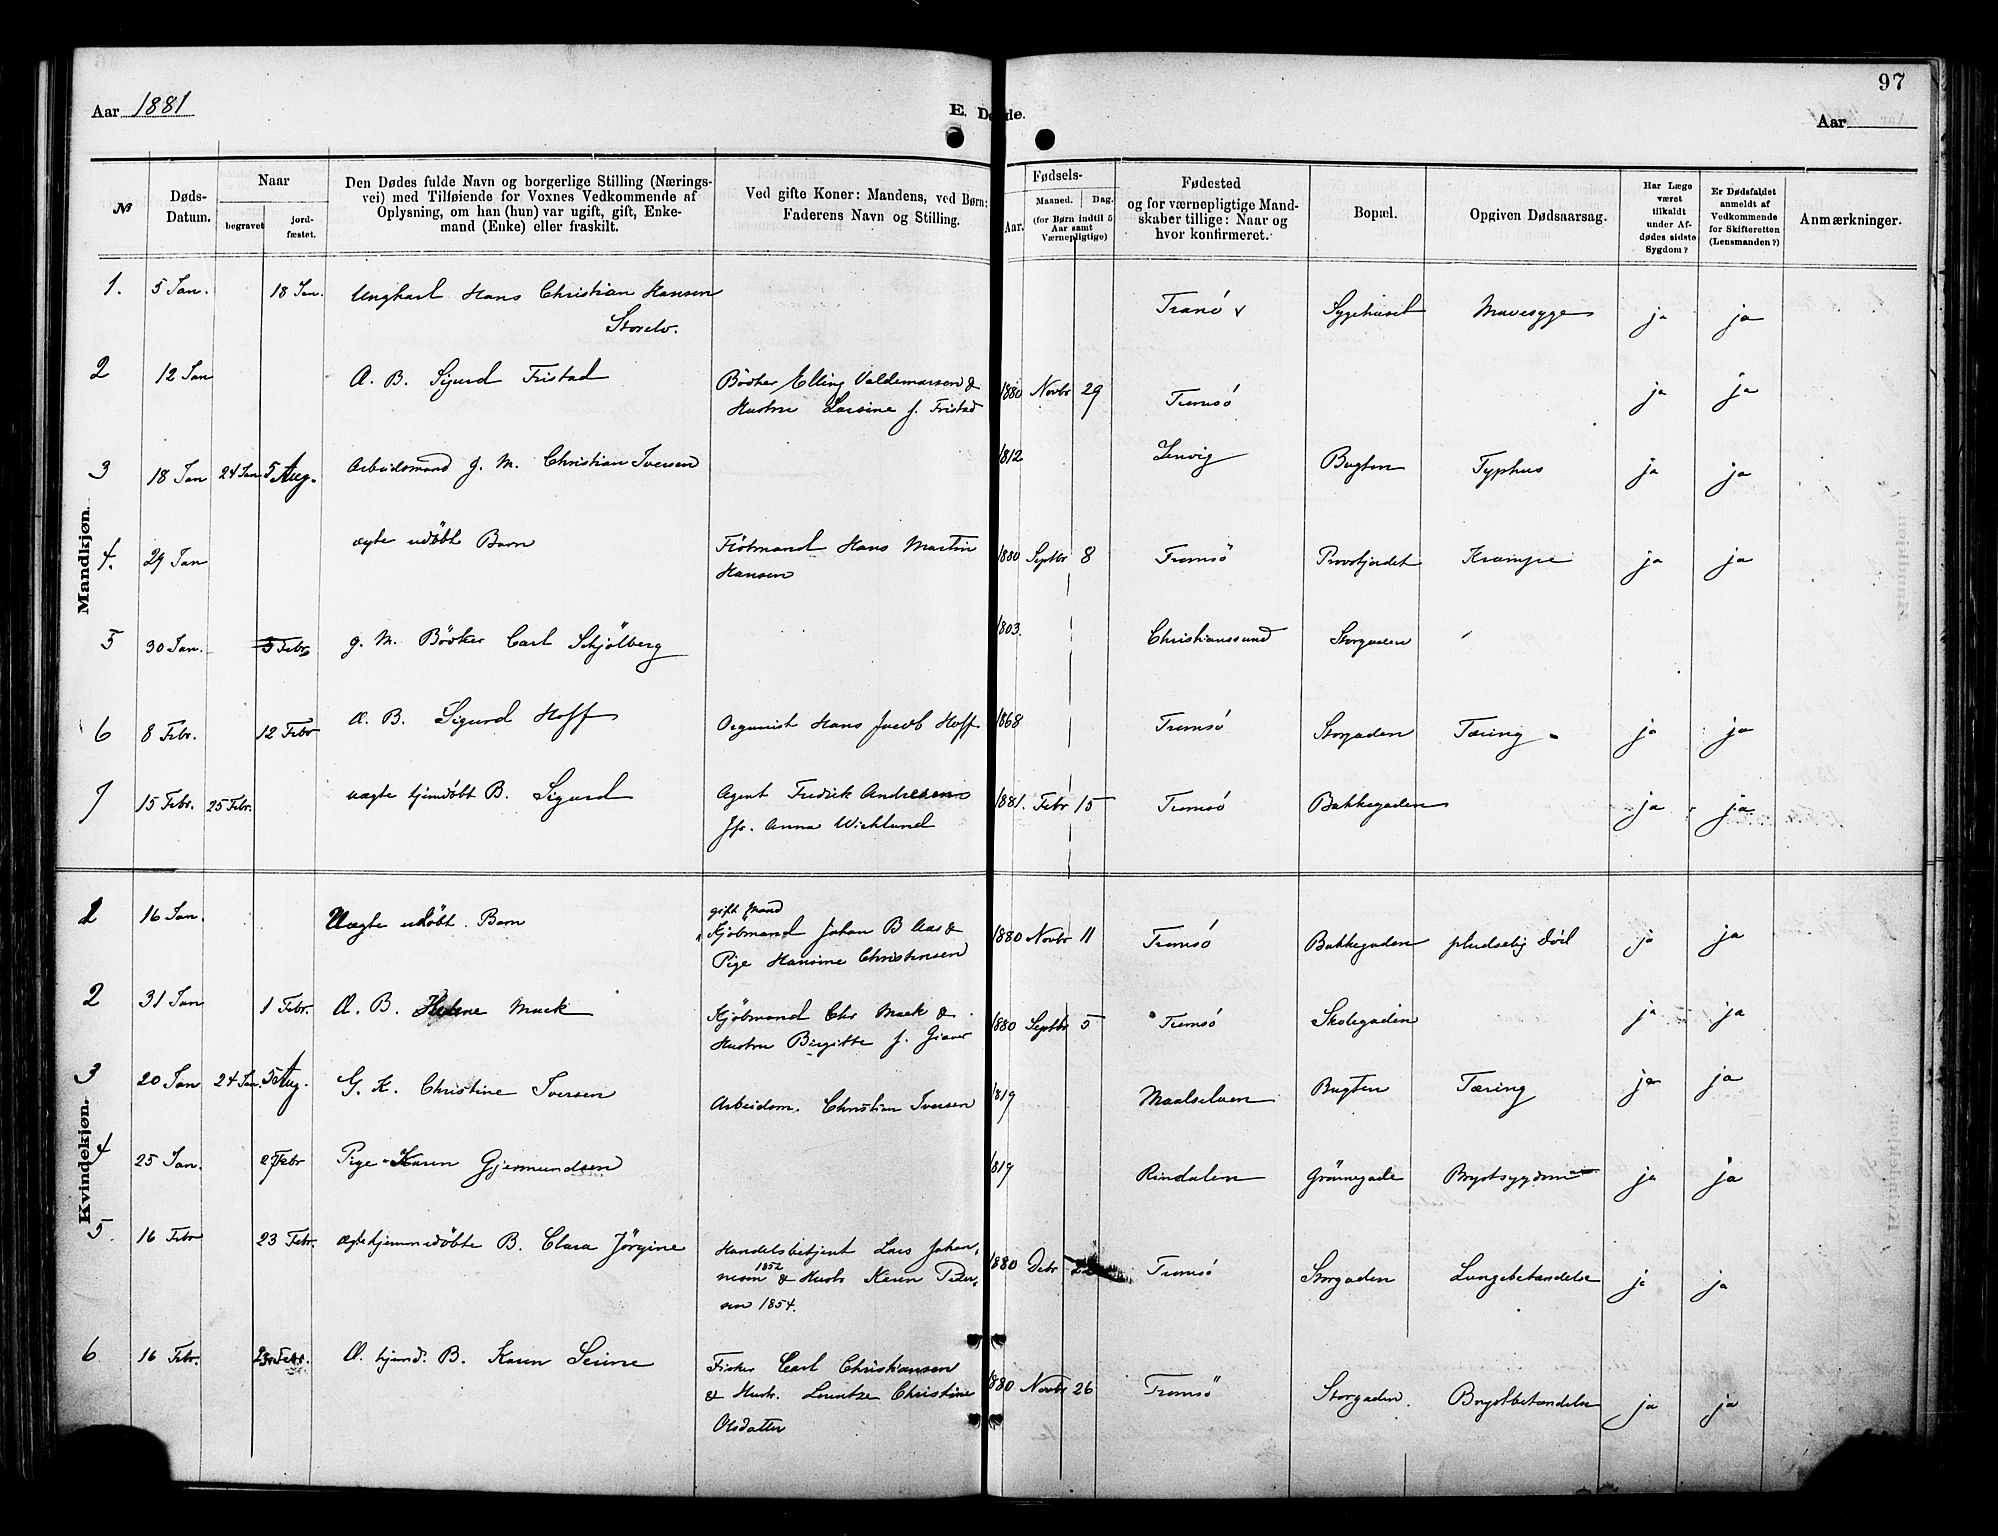 97
Aar 1881
E. Døde.
Aar
№
Døds-Datum.
Naar
begravet
jordfæstet.
Den Dødes fulde Navn og borgerlige Stilling (Næringsvei) med Tilføiende for Voxnes Vedkommende af Oplysning, om han (hun) var ugift, gift, Enkemand (Enke) eller fraskilt.
Ved gifte Koner: Mandens, ved Børn: Faderens Navn og Stilling.
Fødsels-
Aar.
Maaned.
Dag.
(for Børn indtil 5 Aar samt Værnepligtige)
Fødested og for værnepligtige Mandskaber tillige: Naar og hvor konfirmeret.
Bopæl.
Opgiven Dødsaarsag.
Har Læge været tilkaldt under Afdødes sidste Sygdom?
Er Dødsfaldet anmeldt af Vedkommende for Skifteretten (Lensmanden?)
Anmærkninger.
Mandkjøn.
1. 5 Jan. 18 Jan. Ungkarl Hans Christian Hansen Tranö Sygehuset Mavesyge ja ja
Storelv.
2 12 Jan Æ. B. Sigurd Fristad Bödker Elling Valdemarsen & 1880 Novbr 29 Tromsö ja ja
Hustru Larsine f. Fristad
3 18 Jan 24 Jan 5 Aug. Arbeidsmand g. M. Christian Iversen 1812 Lenvig Bugten Typhus ja ja
4. 29 Jan ægte udöbt Barn Flötmand Hans Martin 1880 Septbr 8 Tromsö Provstjordet Krampe ja ja
Hansen
5 30 Jan. 5 Febr g. M. Bödker Carl Schjölberg 1803. Christianssund Storgaden
6 8 Febr. 12 Febr Æ. B. Sigurd Hoff Organist Hans Jacob Hoff 1868 Tromsö Storgaden Tæring ja ja
7 15 Febr. 25 Febr. uægte hjemdöbt B. Sigurd Agent Fredrik Andresen 1881. Febr 15 Tromsö Bakkegaden ja ja
Jfr. Anna Wichlund
Kvindekjøn.
1 16 Jan. Uægte udöbt Barn gift Mand
Kjöbmand Johan B Aas & 1880 Novbr 11 Tromsö Bakkegaden pludselig död ja ja
Pige Hansine Christensen
2 31 Jan 1 Febr. Æ. B. Helene Mack Kjöbmand Chr Mack & 1880 Septbr 5 Tromsö Skolegaden ja ja
Hustru Birgitte f. Giæver
3 20 Jan 24 Jan. 5 Aug. G. K. Christine Iversen Arbeidsm. Christian Iversen 1819 Maalselven Bugten Tæring ja ja
4 25 Jan. 2 Febr Pige Karen Gjermundsen 1819 Rindalen Grönnegade Brystsygdom ja ja
5. 16 Febr 23 Febr. ægte hjemmedöbte B. Clara Jörgine Handelsbetjent Lars Johan- 1880 Debr Tromsö Storgaden Lungebetændelse ja ja
nesen 1852 & Hustr Karen Peder-
sen 1854.
6 16 Febr. 23 Febr. Æ. hjemd. B. Karen Fisker Carl Christiansen 1880 Novbr 26 Tromsö Storgaden. Brystbetændelse ja ja
& Hustr. Christine
Olsdatter